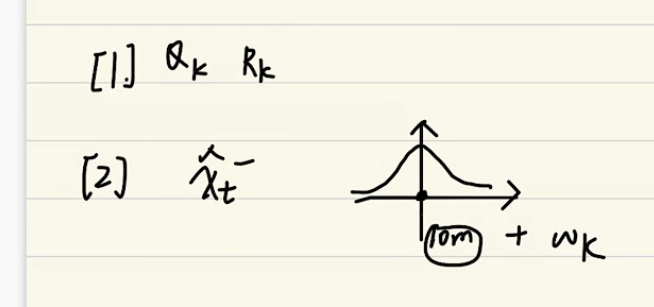 [1.] Qk Rk
[2] x̂t⁻
10m + wk